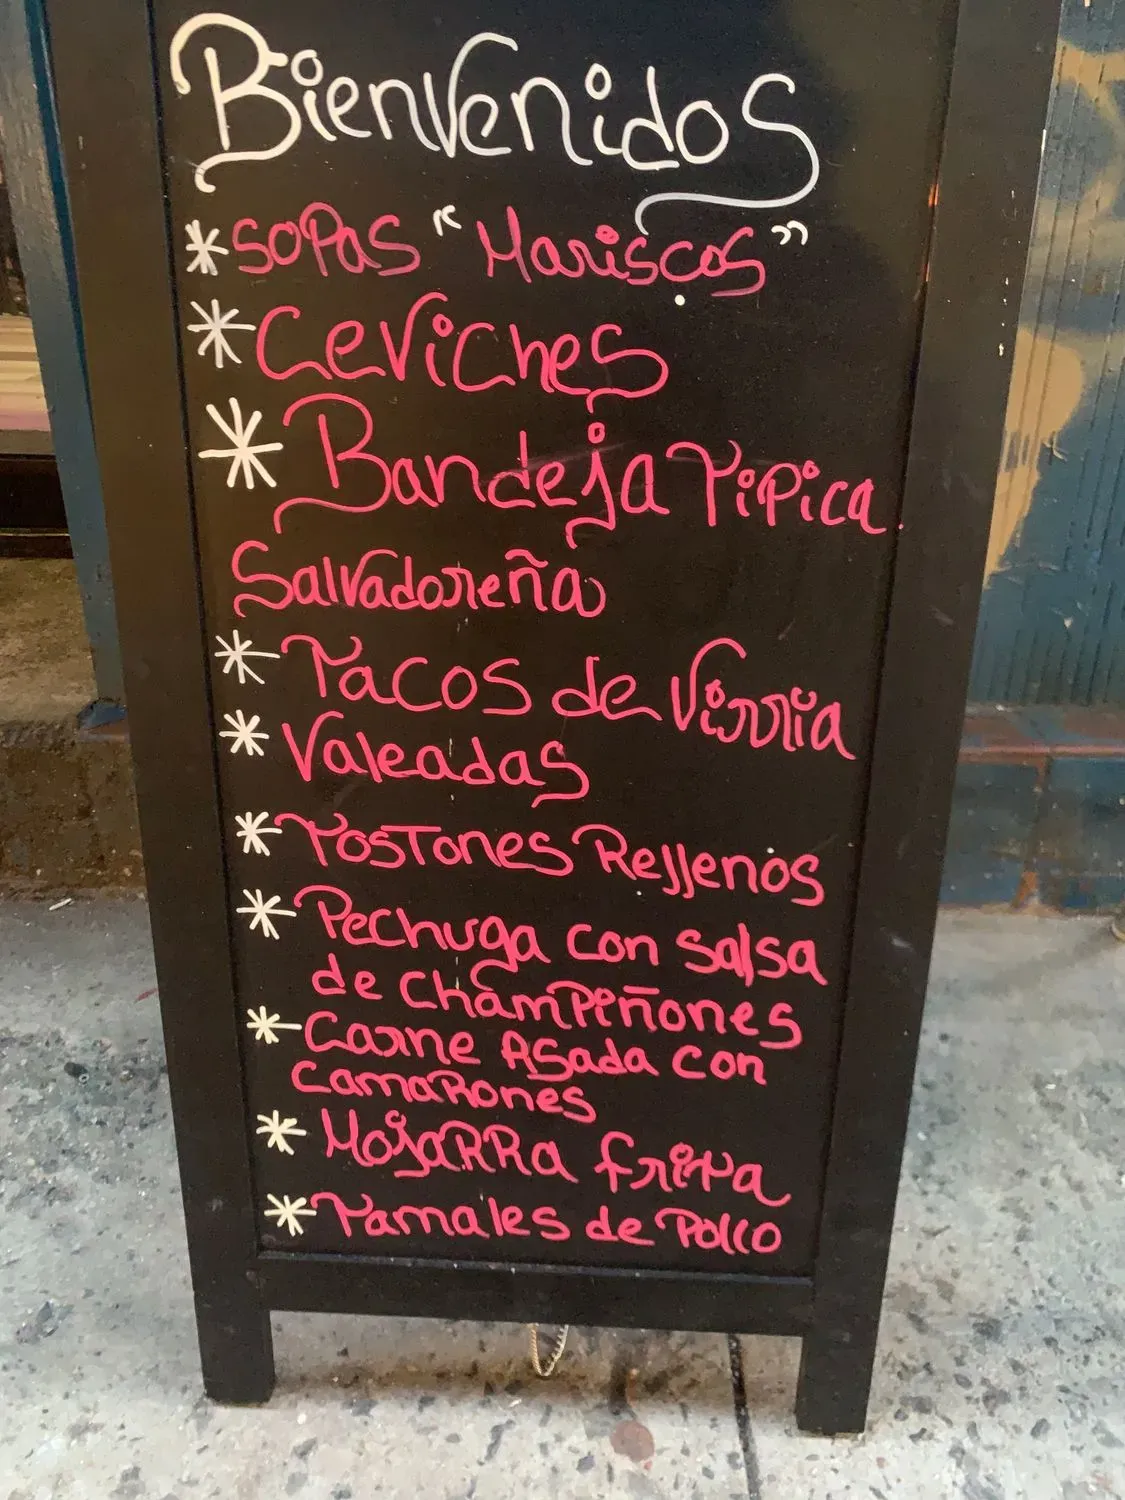 Bienvenidos
* SOPAS "Mariscos"
* Ceviches
* Bandeja Tipica
Salvadoreña
* Tacos de Virria
* Valeadas
* Tostones Rellenos
* Pechuga con salsa
de Champeñones
* Carne Asada con
camarones
* Mojarra frita
* Tamales de Pollo